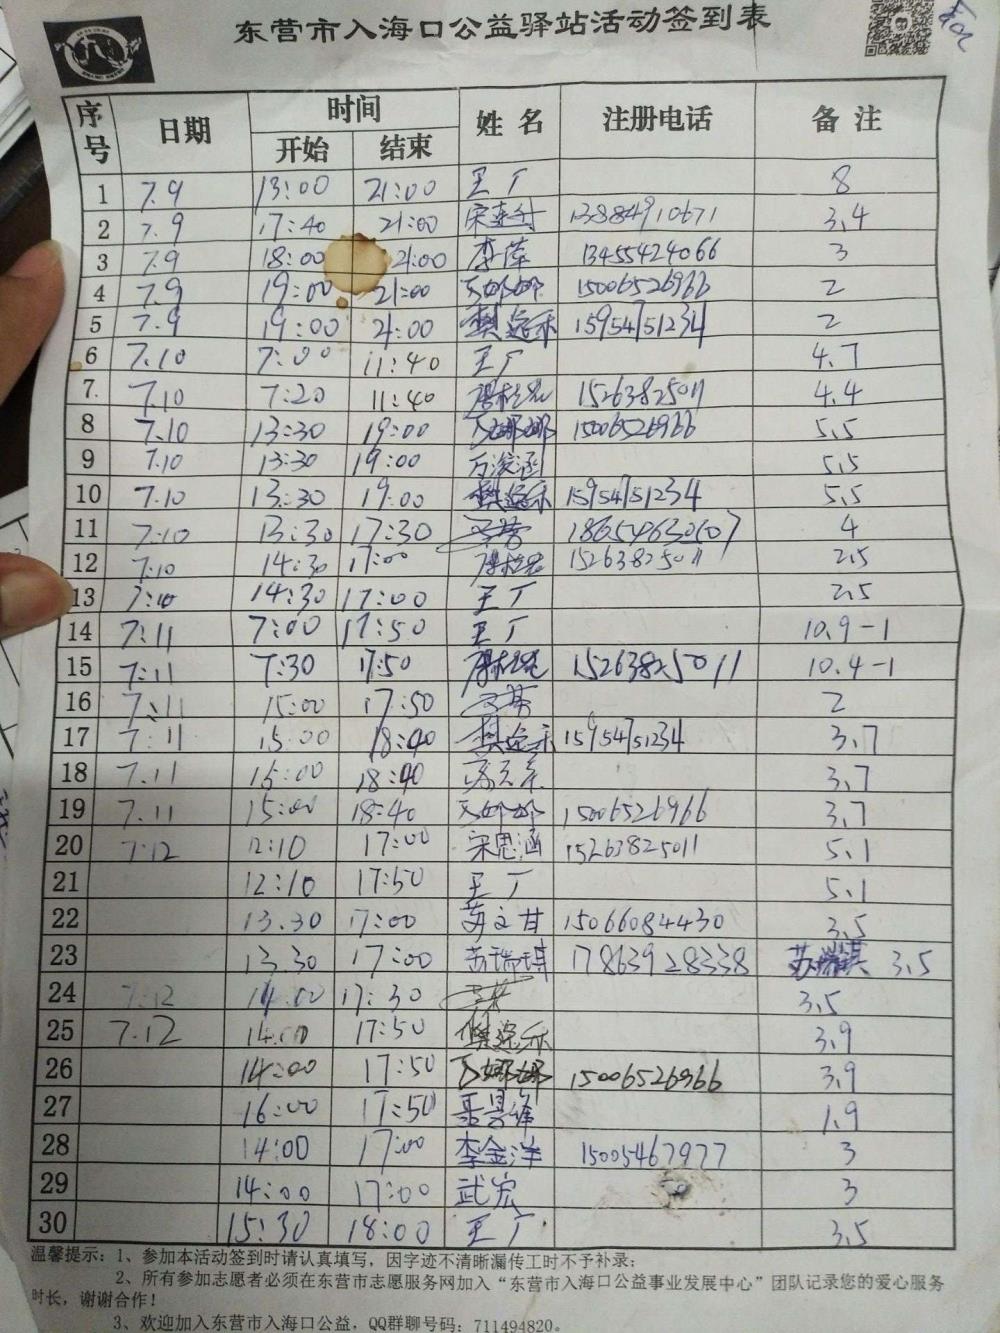 东营市入海口公益驿站活动签到表
序号 日期 时间 姓名 注册电话 备注
开始 结束
1 7.9 13:00 21:00 王丁 8
2 7.9 17:40 21:00 13884910671 3.4
3 7.9 18:00 21:00 李萍 13455424066 3
4 7.9 19:00 21:00 15006526966 2
5 7.9 19:00 21:00 15954751234 2
6 7.10 7:00 11:40 王丁 4.7
7 7.10 7:20 11:40 15263825011 4.4
8 7.10 13:30 19:00 15006526966 5.5
9 7.10 13:30 19:00 5.5
10 7.10 13:30 19:00 15954751234 5.5
11 7:10 13:30 17:30 18654632607 4
12 7:10 14:30 17:00 15263825011 2.5
13 7:10 14:30 17:00 王丁 2.5
14 7:11 7:00 17:50 王丁 10.9-1
15 7:11 7:30 17:50 15263825011 10.4-1
16 7:11 15:00 17:50 2
17 7:11 15:00 18:40 15954751234 3.7
18 7.11 15:00 18:40 3.7
19 7.11 15:00 18:40 15006526966 3.7
20 7:12 12:10 17:00 宋思涵 15263825011 5.1
21 12:10 17:50 王丁 5.1
22 13.30 17:00 苏文甘 15066084430 3.5
23 13.30 17:00 苏瑞琪 17863928338 苏瑞琪 3.5
24 7:12 14:00 17:30 3.5
25 7.12 14:00 17:50 3.9
26 14:00 17:50 15006526966 3.9
27 16:00 17:50 1.9
28 14:00 17:00 李金洋 15005467977 3
29 14:00 17:00 武宏 3
30 15:30 18:00 王丁 3.5
温馨提示：1、参加本活动签到时请认真填写，因字迹不清晰漏传工时不予补录；
2、所有参加志愿者必须在东营市志愿服务网加入“东营市入海口公益事业发展中心”团队记录您的爱心服务
时长，谢谢合作！
3、欢迎加入东营市入海口公益，QQ群聊号码：711494820。